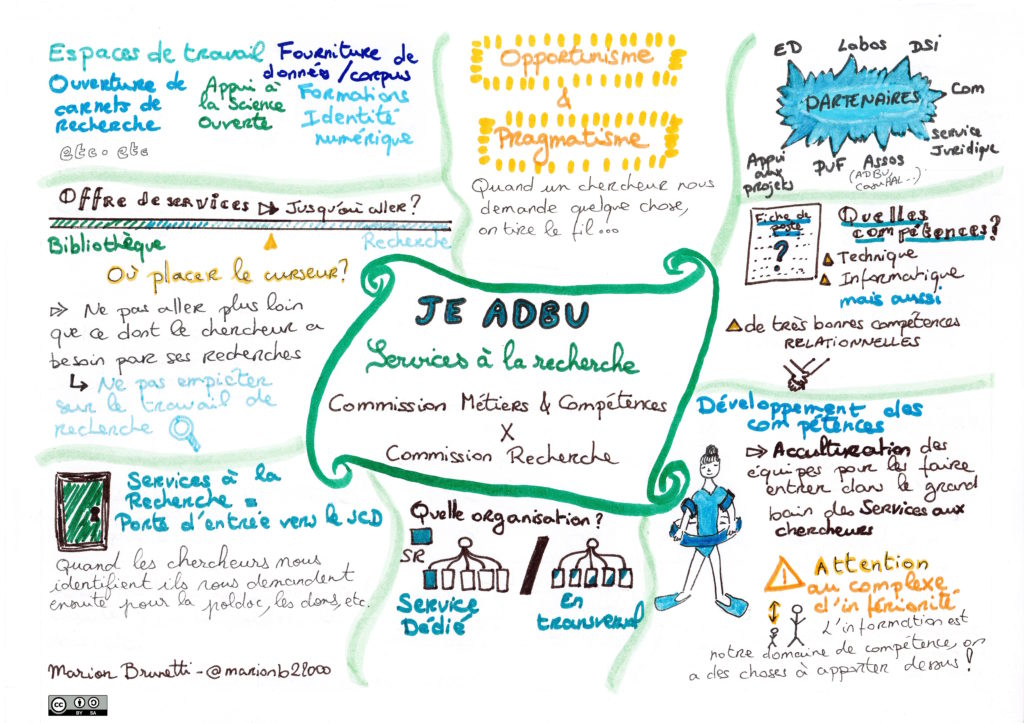 Espaces de travail
Fourniture de
données/corpus
Ouverture de
carnets de
recherche
Appui à
la Science
Ouverte
Formations
Identité
numérique
etc. etc
Opportunisme
&
Pragmatisme
Quand un chercheur nous
demande quelque chose,
on tire le fil...
ED
Labos
DSI
Com
PARTENAIRES
Service
Juridique
Appui
aux
projets
PUF
Assos
(ADBU,
CasuHAL..)
Offre de services ⇒ Jusqu'où aller?
Bibliothèque
Recherche
Où placer le curseur?
⇒ Ne pas aller plus loin
que ce dont le chercheur a
besoin par ses recherches
↳ Ne pas empiéter
sur le travail de
recherche
JE ADBU
Services à la recherche
Commission Métiers & Compétences
X
Commission Recherche
Fiche de
poste
?
Quelles
compétences?
Technique
Informatique
mais aussi
de très bonnes compétences
RELATIONNELLES
Services à la
Recherche =
Porte d'entrée vers le SCD
Quand les chercheurs nous
identifient ils nous demandent
ensuite pour la poldoc, les dons, etc.
Quelle organisation?
SR
/
Service
Dédié
En
transversal
Développement des
compétences
⇒ Acculturation des
équipes pour les faire
entrer dans le grand
bain des Services aux
chercheurs
!
Attention
au complexe
d'infériorité
L'information est
notre domaine de compétence, on
a des choses à apporter dessus!
Marion Brunetti - @marionb22000
cc BY SA